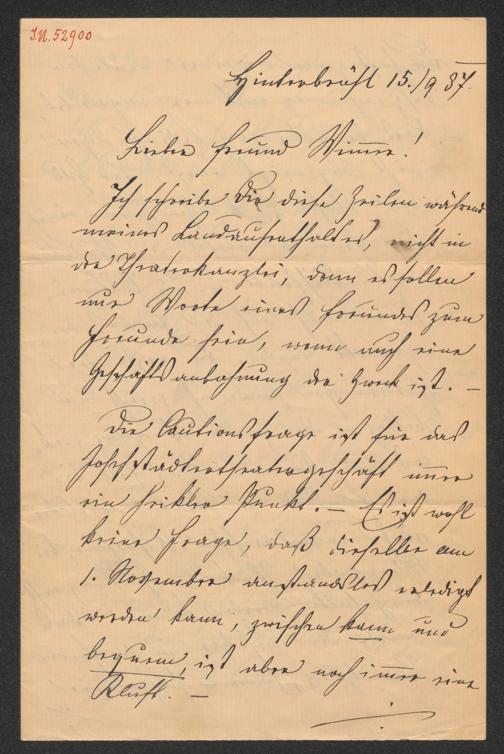 I.N. 52900
Hinterbrühl 15./9 87.
Lieber Freund Wimmer!
Ich schreibe Dir diese Zeilen während
meines Landaufenthaltes, nicht in
der Theaterkanzlei, denn es sollen
nur Worte eines Freundes zum
Freunde sein, wenn auch eine
Geschäftsanbahnung der Zweck ist. –
Die Cautionsfrage ist für das
Josefstädtertheatergeschäft immer
ein heikler Punkt. – Es ist wohl
keine Frage, daß dieselbe am
1. November anstandslos erledigt
werden kann, zwischen kann und
bequem, ist aber noch immer eine
Kluft. –